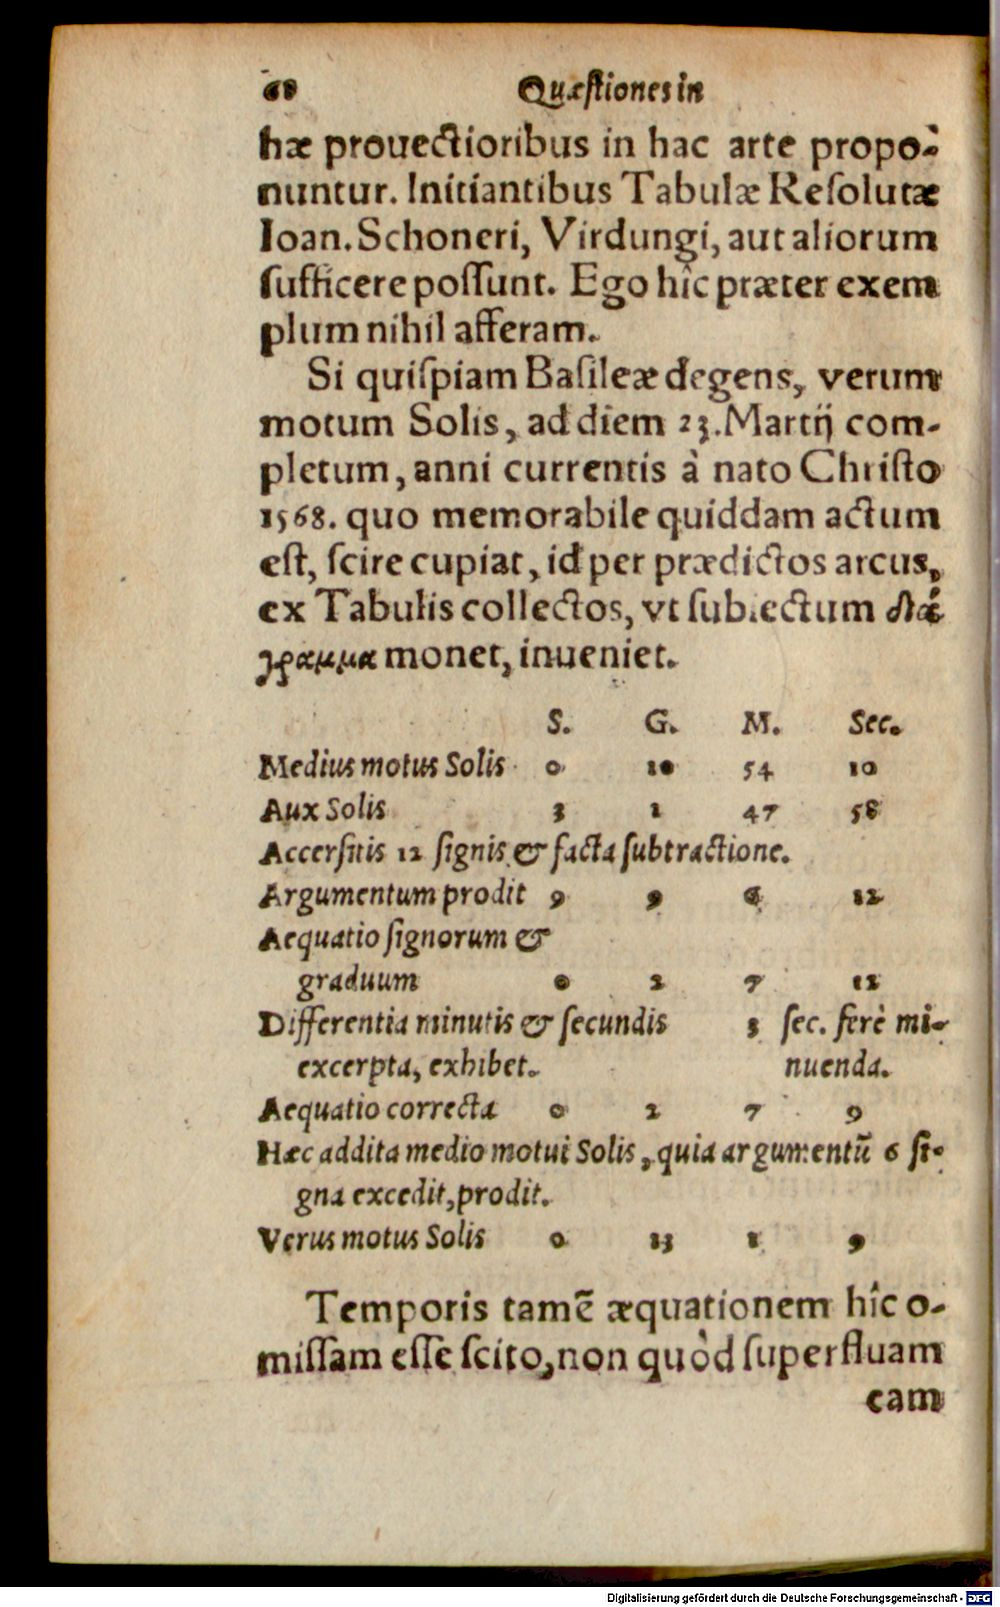 68 Quæstiones in
hæ prouectioribus in hac arte propo-
nuntur. Initiantibus Tabulæ Resolutæ
Ioan. Schoneri, Virdungi, aut aliorum
sufficere possunt. Ego hîc præter exem
plum nihil afferam.
Si quispiam Basileæ degens, verum
motum Solis, ad diem 23. Martij com-
pletum, anni currentis à nato Christo
1568. quo memorabile quiddam actum
est, scire cupiat, id per prædictos arcus,
ex Tabulis collectos, vt subiectum διά
γραμμα monet, inueniet.
S. G. M. Sec.
Medius motus Solis 0 10 54 10
Aux Solis 3 1 47 58
Accersitis 12 signis & facta subtractione.
Argumentum prodit 9 9 6 12
Aequatio signorum &
graduum 0 2 7 12
Differentia minutis & secundis 3 sec. ferè mi-
excerpta, exhibet. nuenda.
Aequatio correcta 0 2 7 9
Hæc addita medio motui Solis, quia argumentũ 6 si-
gna excedit, prodit.
Verus motus Solis 0 13 1 9
Temporis tamẽ æquationem hîc o-
missam esse scito, non quòd superfluam
eam
Digitalisierung gefördert durch die Deutsche Forschungsgemeinschaft - DFG